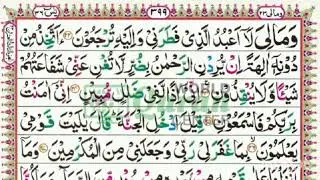 ومالي ٢٣
٣٩٩
يٰسٓ ٣٦
وَمَا لِيَ لَآ اَعْبُدُ الَّذِيْ فَطَرَنِيْ وَاِلَيْهِ تُرْجَعُوْنَ ﴿٢٢﴾ ءَاَتَّخِذُ مِنْ
دُوْنِهٖٓ اٰلِهَةً اِنْ يُّرِدْنِ الرَّحْمٰنُ بِضُرٍّ لَّا تُغْنِ عَنِّيْ شَفَاعَتُهُمْ
شَيْـًٔا وَّلَا يُنْقِذُوْنِ ﴿٢٣﴾ اِنِّيْٓ اِذًا لَّفِيْ ضَلٰلٍ مُّبِيْنٍ ﴿٢٤﴾ اِنِّيْٓ اٰمَنْتُ
بِرَبِّكُمْ فَاسْمَعُوْنِ ﴿٢٥﴾ قِيْلَ ادْخُلِ الْجَنَّةَ قَالَ يٰلَيْتَ قَوْمِيْ
يَعْلَمُوْنَ ﴿٢٦﴾ بِمَا غَفَرَ لِيْ رَبِّيْ وَجَعَلَنِيْ مِنَ الْمُكْرَمِيْنَ ﴿٢٧﴾ وَمَآ